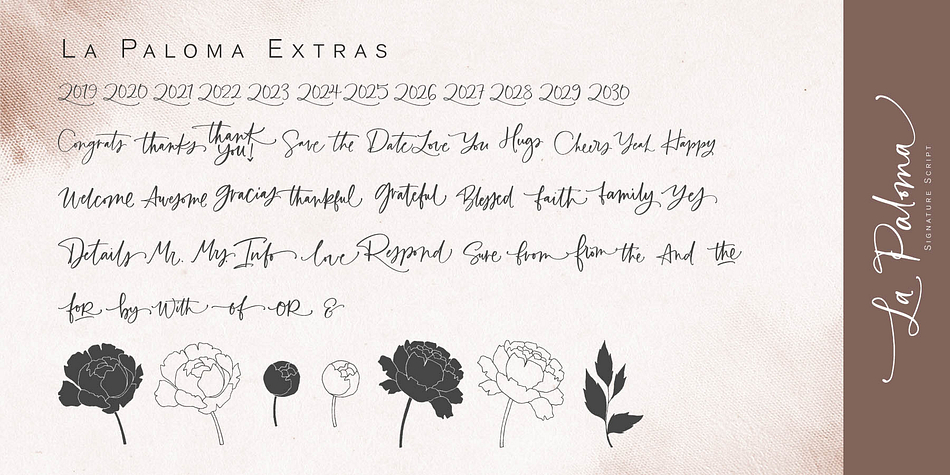 La Paloma Extras
2019 2020 2021 2022 2023 2024 2025 2026 2027 2028 2029 2030
Congrats thanks thank you! Save the Date Love You Hugs Cheers Yeah Happy
Welcome Awesome Gracias thankful Grateful Blessed faith family Yes
Details Mr. Mrs Info love Respond Save from from the And the
for by With of OR &
La Paloma
Signature Script